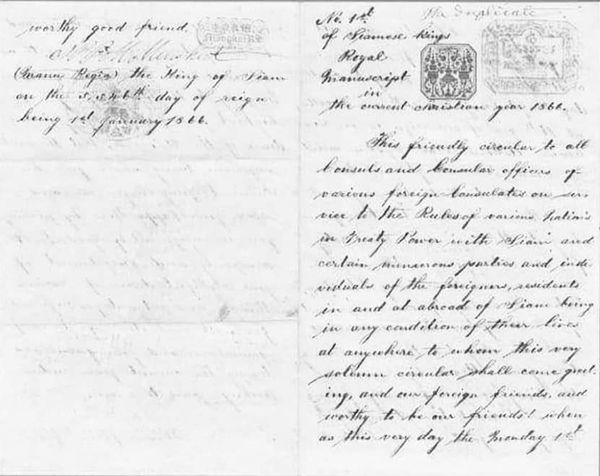 worthy good friend.
Mongkut
(Manu Regia) the King of Siam
on the day of reign
being 1st January 1866.
The Duplicate
No. 1st
of Siamese kings
Royal
Manuscript
in
the current christian year 1866.
This friendly circular to all
Consuls and Consular officers of
various foreign Consulates on ser-
vice to the Rules of various Nations
in Treaty Power with Siam and
certain numerous parties and indi-
viduals of the foreigners, residents
in and at abroad of Siam being
in any condition of their lives
at anywhere to whom this very
solemn circular shall come greet-
ing, and our foreign friends, and
worthy to be our friends! when
as this very day the Monday 1st